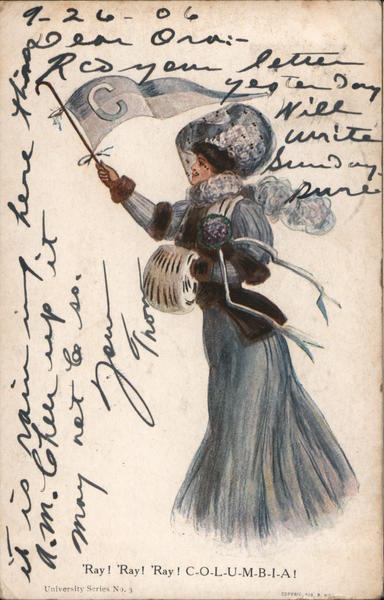 9-26-06
Dear Ora:-
Rcd your letter
yesterday
Will
write
Sunday
sure
it is raining here this
a.m. Cheer up it
may not b so.
Your
C
'Ray! 'Ray! 'Ray! C-O-L-U-M-B-I-A!
University Series No. 3